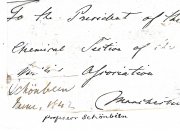 To the President of the
Chemical Section of the
British Association
Schönbein
June, 1842 Manchester
professor Schönbein